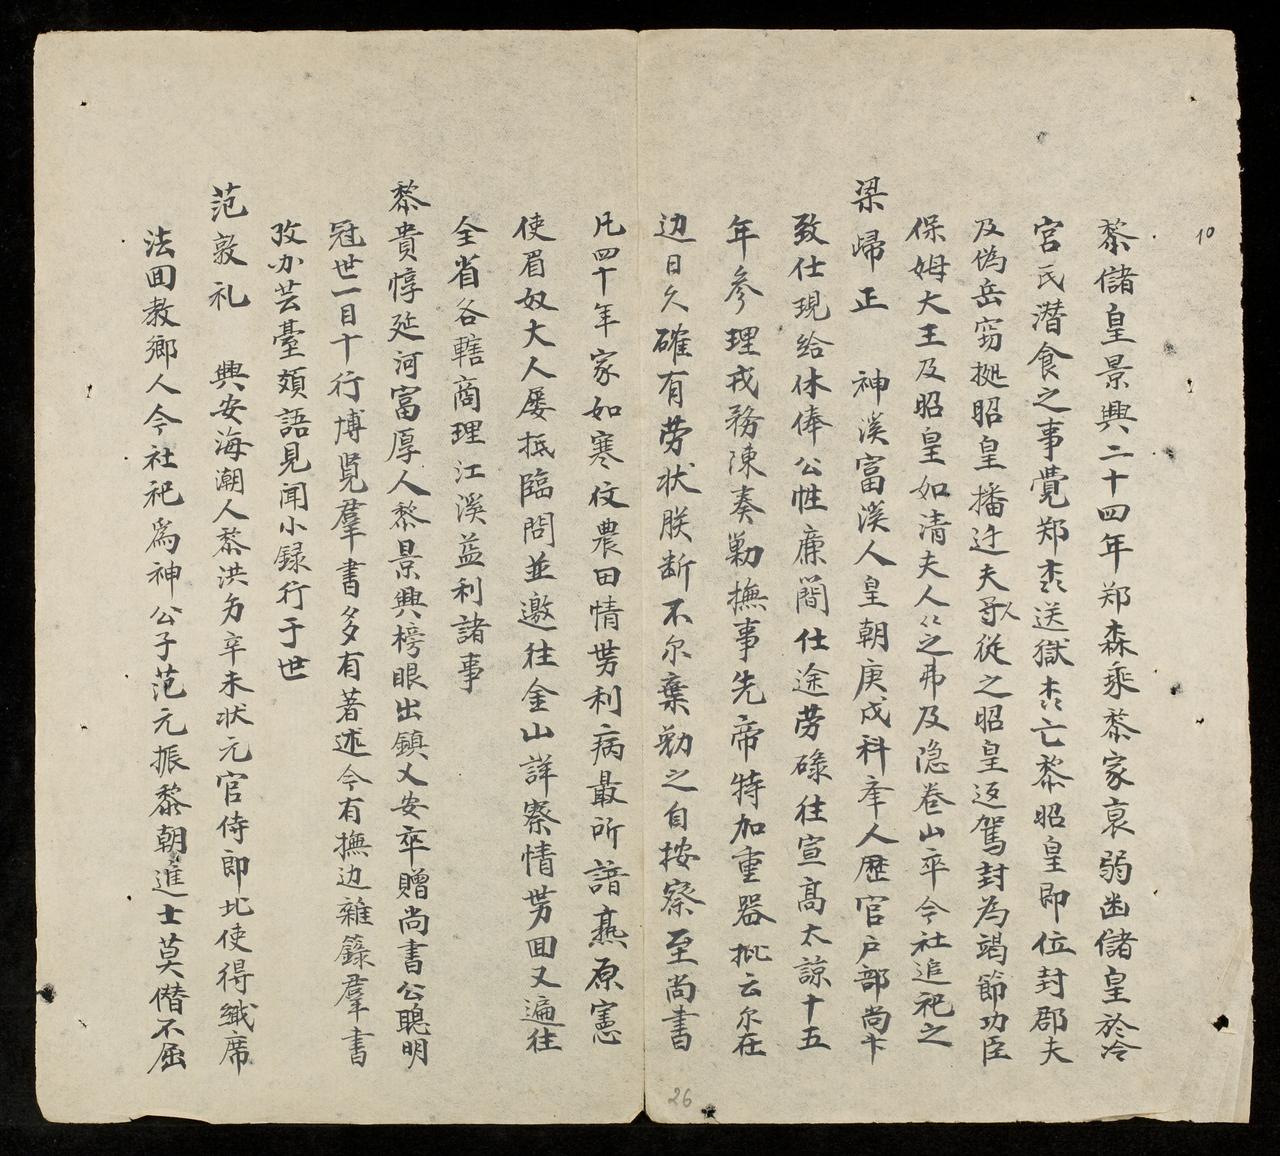 10
黎儲皇景興二十四年郑森乘黎家衰弱幽儲皇於冷
宮氏潛食之事覺郑森送獄森亡黎昭皇即位封郡夫
及偽岳窃拠昭皇播迁夫人㝵従之昭皇返駕封為竭節功臣
保姆大王及昭皇如清夫人〻之弗及隐卷山卒今社追祀之
梁歸正 神溪富溪人皇朝庚戌科舉人歷官户部尚书
致仕現给休俸公性廉簡仕途劳碌往宣高太諒十五
年参理戎務陳奏勦撫事先帝特加重器批云尔在
边日久確有劳状朕断不尔棄勦之自按察至尚書
凡四十年家如寒佼農田情势利病最所諳熟原憲
使眉奴大人屡抵臨問並邀往金山詳察情势回又遍往
全省各轄商理江溪益利諸事
黎貴惇延河富厚人黎景興榜眼出鎮乂安卒贈尚書公聰明
冠世一目十行博覧羣書多有著述今有撫边雜錄羣書
攷办芸臺𩔖語見闻小録行于世
范敦礼 興安海潮人黎洪为辛未状元官侍郎北使得纖席
法回教鄉人今社祀為神公子范元振黎朝進士莫僭不屈
26